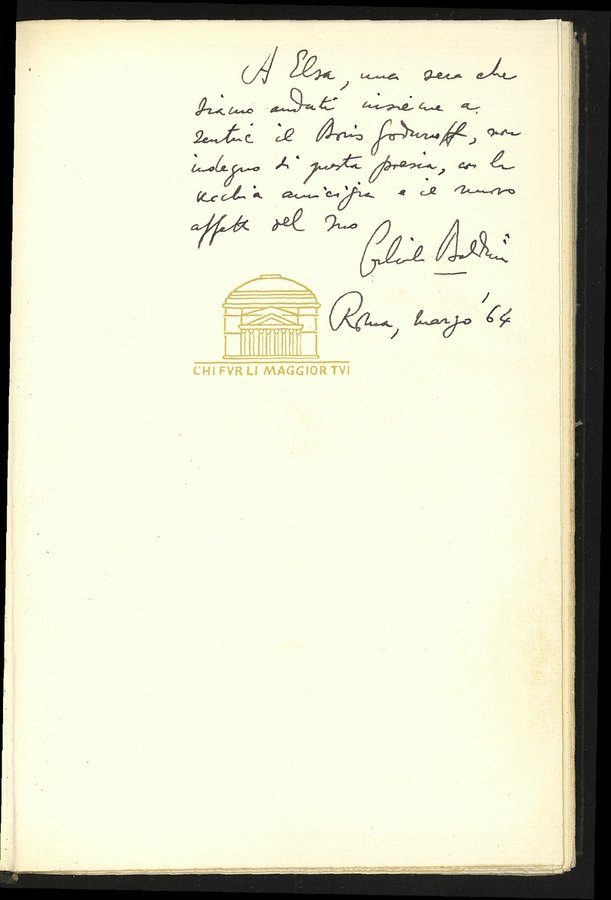 A Elsa, una sera che
siamo andati insieme a
sentire il Boris Godunoff, non
indegno di questa poesia, con la
vecchia amicizia e il nuovo
affetto del suo
Baldini
Roma, marzo '64
CHI FVR LI MAGGIOR TVI